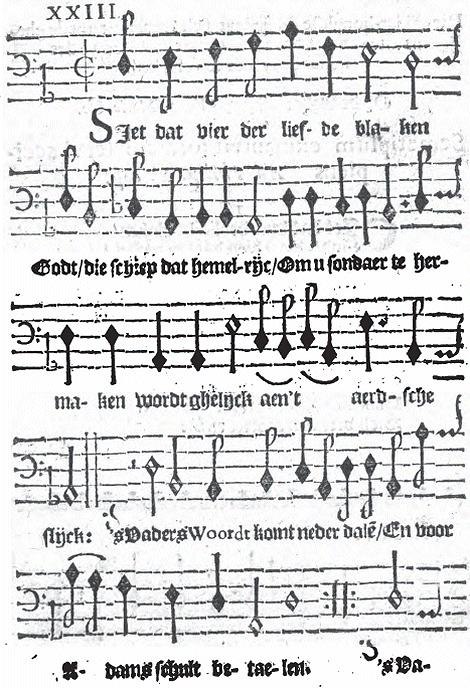 XXIII
SJet dat vier der lief- de bla- ken
Godt/die schiep dat hemel-rijc/Om u sondaer te her-
ma- ken wordt ghelijck aen't aerd- sche
slijck: 'sVaders Woordt komt neder dalē/En voor
A- dams schult be- tae- len. 'sVa-